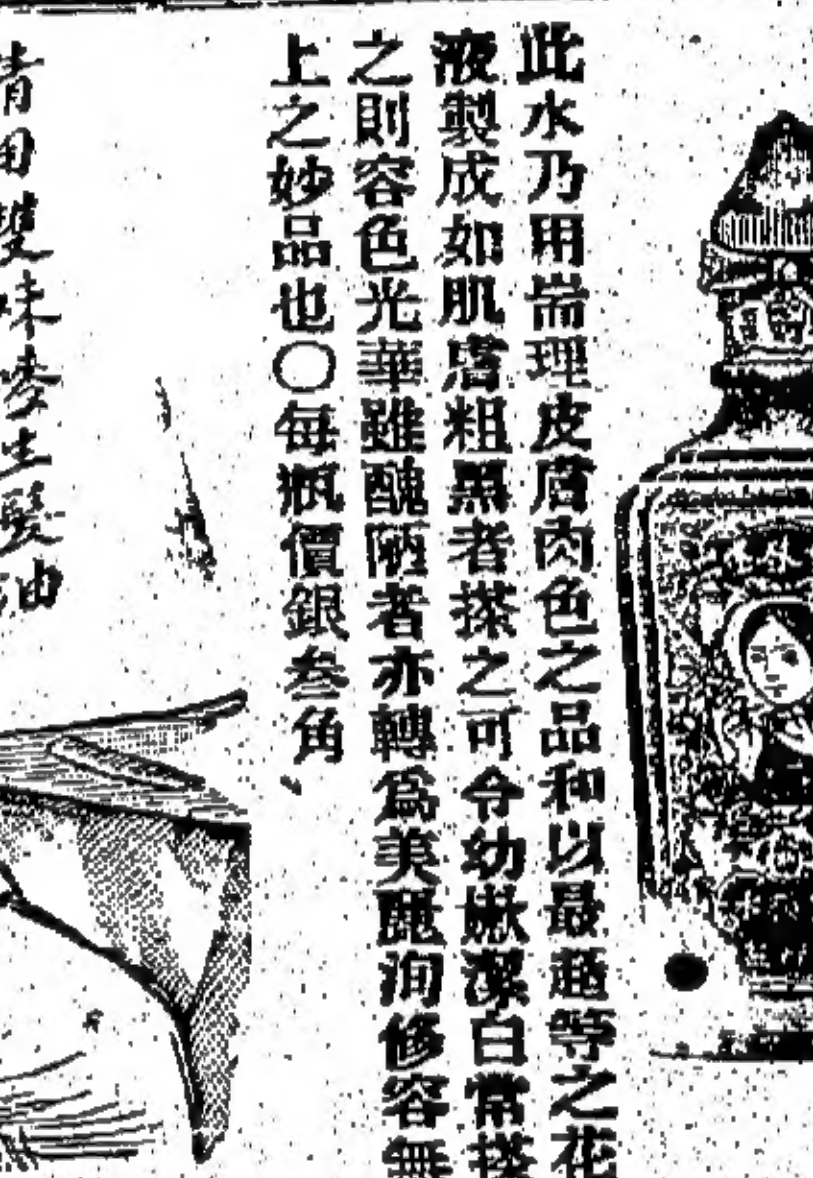 此水乃用耑理皮膚肉色之品和以最超等之花
液製成如肌膚粗黑者搽之可令幼嫩潔白常搽
之則容色光華雖醜陋者亦轉爲美麗洵修容無
上之妙品也〇每瓶價銀叁角、
生髮油